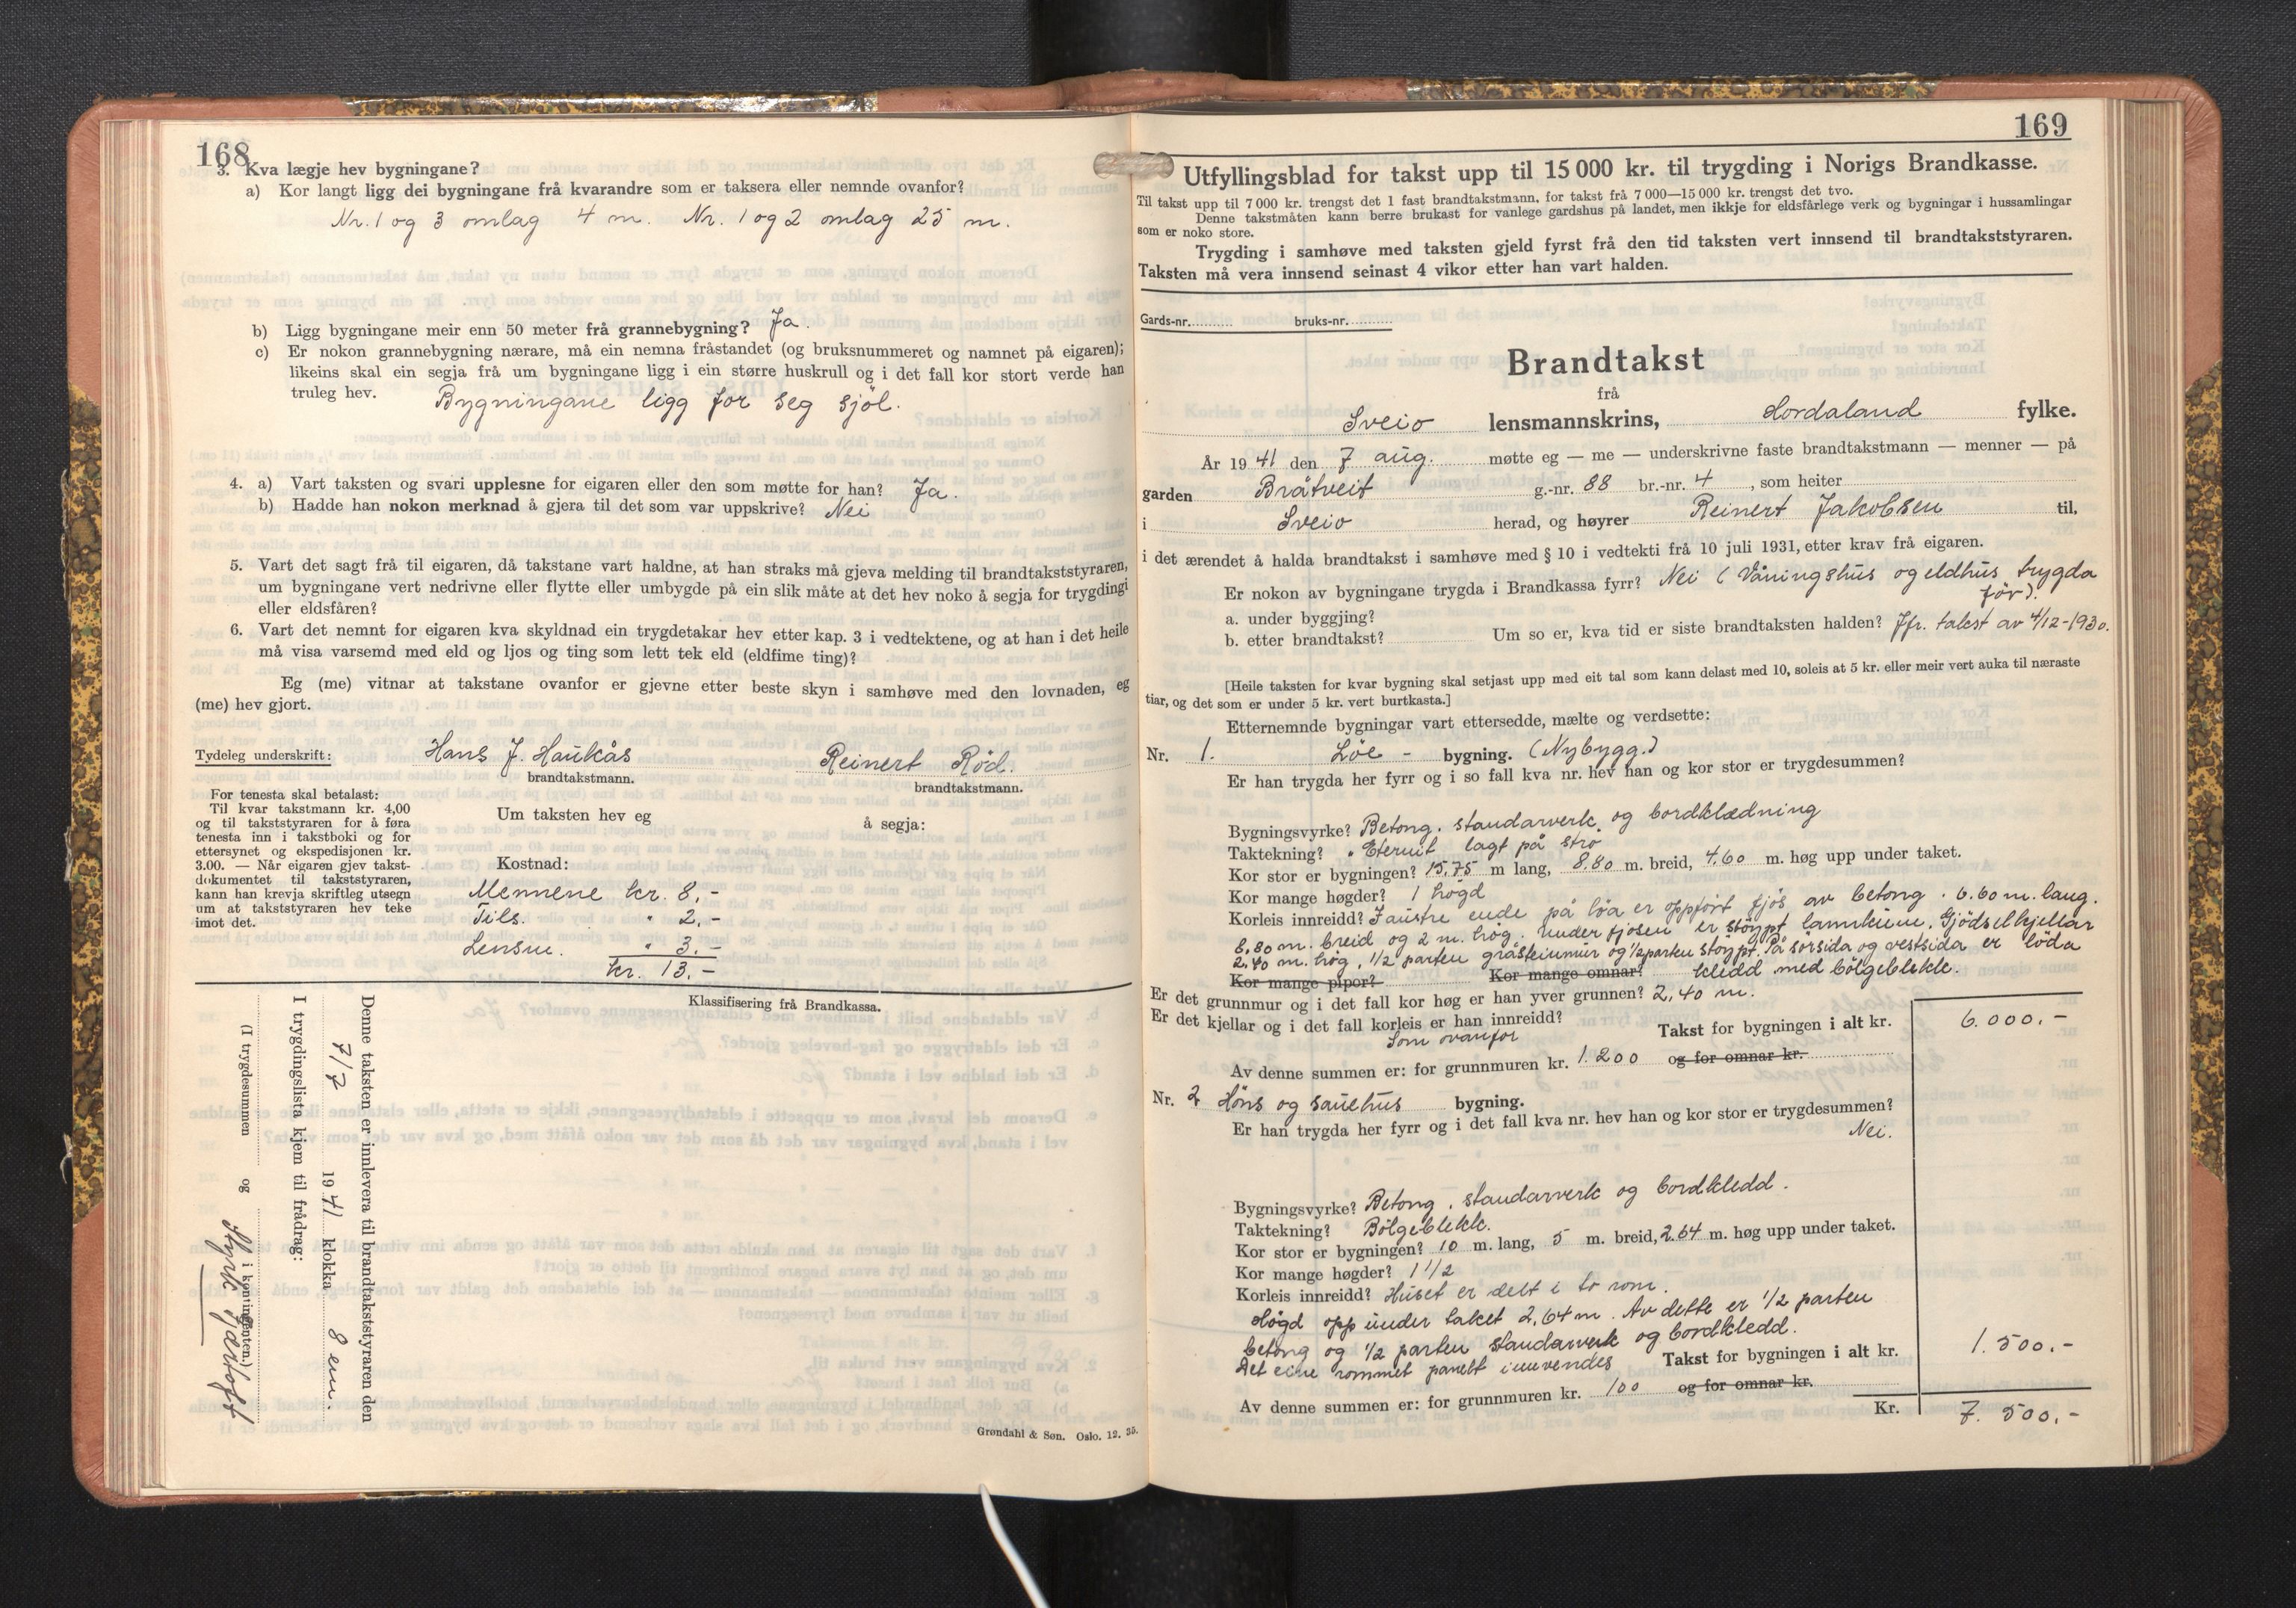 168
3. Kva lægje hev bygningane?
a) Kor langt ligg dei bygningane frå kvarandre som er taksera eller nemnde ovanfor?
Nr. 1 og 3 omlag 4 m. Nr. 1 og 2 omlag 25 m.
b) Ligg bygningane meir enn 50 meter frå grannebygning? Ja.
c) Er nokon grannebygning nærare, må ein nemna fråstandet (og bruksnummeret og namnet på eigaren);
likeins skal ein segja frå um bygningane ligg i ein større huskrull og i det fall kor stort verde han
truleg hev. Bygningane ligg for seg sjöl.
4. a) Vart taksten og svari upplesne for eigaren eller den som møtte for han? Ja.
b) Hadde han nokon merknad å gjera til det som var uppskrive? Nei
5. Vart det sagt frå til eigaren, då takstane vart haldne, at han straks må gjeva melding til brandtakststyraren,
um bygningane vert nedrivne eller flytte eller umbygde på ein slik måte at det hev noko å segja for trygdingi
eller eldsfåren?
6. Vart det nemnt for eigaren kva skyldnad ein trygdetakar hev etter kap. 3 i vedtektene, og at han i det heile
må visa varsemd med eld og ljos og ting som lett tek eld (eldfime ting)?
Eg (me) vitnar at takstane ovanfor er gjevne etter beste skyn i samhøve med den lovnaden, eg
(me) hev gjort.
Tydeleg underskrift: Hans J. Haukås Reinert Röd.
brandtakstmann. brandtakstmann.
For tenesta skal betalast:
Til kvar takstmann kr. 4,00
og til takststyraren for å føra
tenesta inn i takstboki og for
ettersynet og ekspedisjonen kr.
3.00. — Når eigaren gjev takst-
dokumentet til takststyraren,
kann han krevja skriftleg utsegn
um at takststyraren hev teke
imot det.
Um taksten hev eg å segja:
Kostnad:
Mennene kr. 8,-
Tils. " 2,-
Lensm. " 3.-
kr. 13.-
Klassifisering frå Brandkassa.
Denne taksten er innlevera til brandtakststyraren den
7/7 1941 klokka 8 em.
I trygdingslista kjem til frådrag:
(I trygdesummen og i kontingenten.)
Grøndahl & Søn. Oslo. 12. 35.
169
Utfyllingsblad for takst upp til 15 000 kr. til trygding i Norigs Brandkasse.
Til takst upp til 7 000 kr. trengst det 1 fast brandtakstmann, for takst frå 7 000—15 000 kr. trengst det tvo.
Denne takstmåten kann berre brukast for vanlege gardshus på landet, men ikkje for eldsfårlege verk og bygningar i hussamlingar
som er noko store.
Trygding i samhøve med taksten gjeld fyrst frå den tid taksten vert innsend til brandtakststyraren.
Taksten må vera innsend seinast 4 vikor etter han vart halden.
Gards-nr. bruks-nr.
Brandtakst
frå
Sveio lensmannskrins, Hordaland fylke.
År 1941 den 7 aug. møtte eg — me — underskrivne faste brandtakstmann — menner — på
garden Bråtveit g.-nr. 88 br.-nr. 4, som heiter
i Sveio herad, og høyrer Reinert Jakobsen til,
i det ærendet å halda brandtakst i samhøve med § 10 i vedtekti frå 10 juli 1931, etter krav frå eigaren.
Er nokon av bygningane trygda i Brandkassa fyrr? Nei (Våningshus og eldhus trygda
för).
a. under byggjing?
b. etter brandtakst? Um so er, kva tid er siste brandtaksten halden? Jfr. takst av 4/12-1930.
[Heile taksten for kvar bygning skal setjast upp med eit tal som kann delast med 10, soleis at 5 kr. eller meir vert auka til næraste
tiar, og det som er under 5 kr. vert burtkasta.]
Etternemnde bygningar vart ettersedde, mælte og verdsette:
Nr. 1. Löe - bygning. (Nybygg.)
Er han trygda her fyrr og i so fall kva nr. hev han og kor stor er trygdesummen?
Bygningsvyrke? Betong, standarverk og bordklædning
Taktekning? Eternit lagt på stro
Kor stor er bygningen? 15,75 m lang, 8,80 m. breid, 4,60 m. høg upp under taket.
Kor mange høgder? 1 högd
Korleis innreidd? I austre ende på löa er oppfört fjös av betong. 6.60 m. lang.
8,80 m. breid og 2 m. høg. Under fjosen er stöypt landkjenne. Gjödselkjellar
2,40 m. høg, 1/2 parten gråsteinmur og 1/2 parten stöypt. På sörsida og vestsida er löda
Kor mange pipor? Kor mange omnar? kledd med bölgeblekk.
Er det grunnmur og i det fall kor høg er han yver grunnen? 2,40 m.
Er det kjellar og i det fall korleis er han innreidd? Takst for bygningen i alt kr. 6.000.-
Som ovanfor
Av denne summen er: for grunnmuren kr. 1.200 og for omnar kr.
Nr. 2 Höns og sauehus bygning.
Er han trygda her fyrr og i det fall kva nr. hev han og kor stor er trygdesummen?
Nei.
Bygningsvyrke? Betong, standarverk og bordkledd.
Taktekning? Bölgeblekk.
Kor stor er bygningen? 10 m. lang, 5 m. breid, 2.64 m. høg upp under taket.
Kor mange høgder? 1 1/2
Korleis innreidd? Huset er delt i to rom.
Högd opp under taket 2,64 m. Av dette er 1/2 parten
betong og 1/2 parten standarverk og bordkledd.
Det eine rommet panelt innvendes Takst for bygningen i alt kr. 1.500.-
Av denne summen er: for grunnmuren kr. 100 og for omnar kr.
Kr. 7.500.-